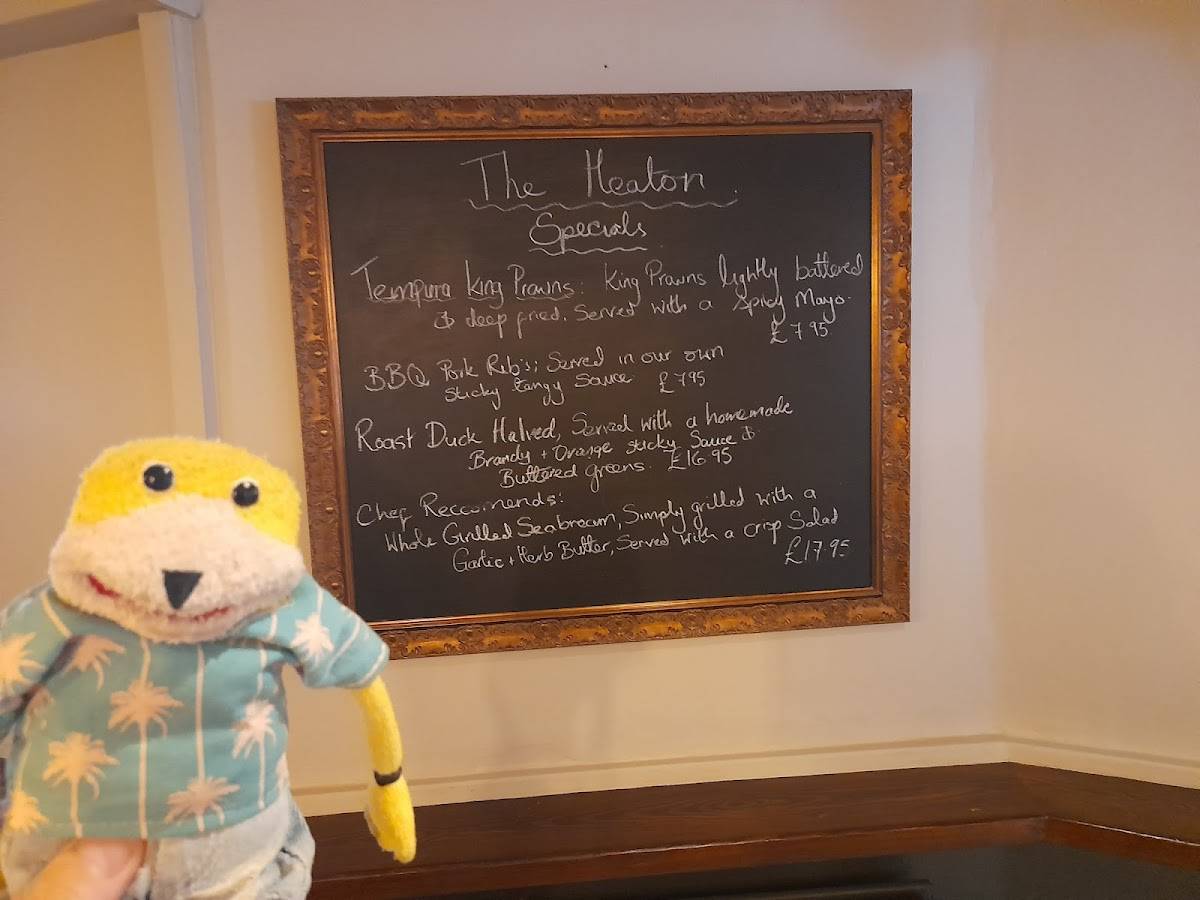 The Heaton
Specials
Tempura King Prawns: King Prawns lightly battered
& deep fried. Served with a Spicy Mayo.
£7.95
BBQ Pork Rib's; Served in our own
Sticky tangy Sauce £7.95
Roast Duck Halved, Served with a homemade
Brandy + Orange sticky Sauce &
Buttered greens. £16.95
Chef Reccomends:
Whole Grilled Seabream, Simply grilled with a
Garlic + Herb Butter, Served with a crisp Salad
£17.95